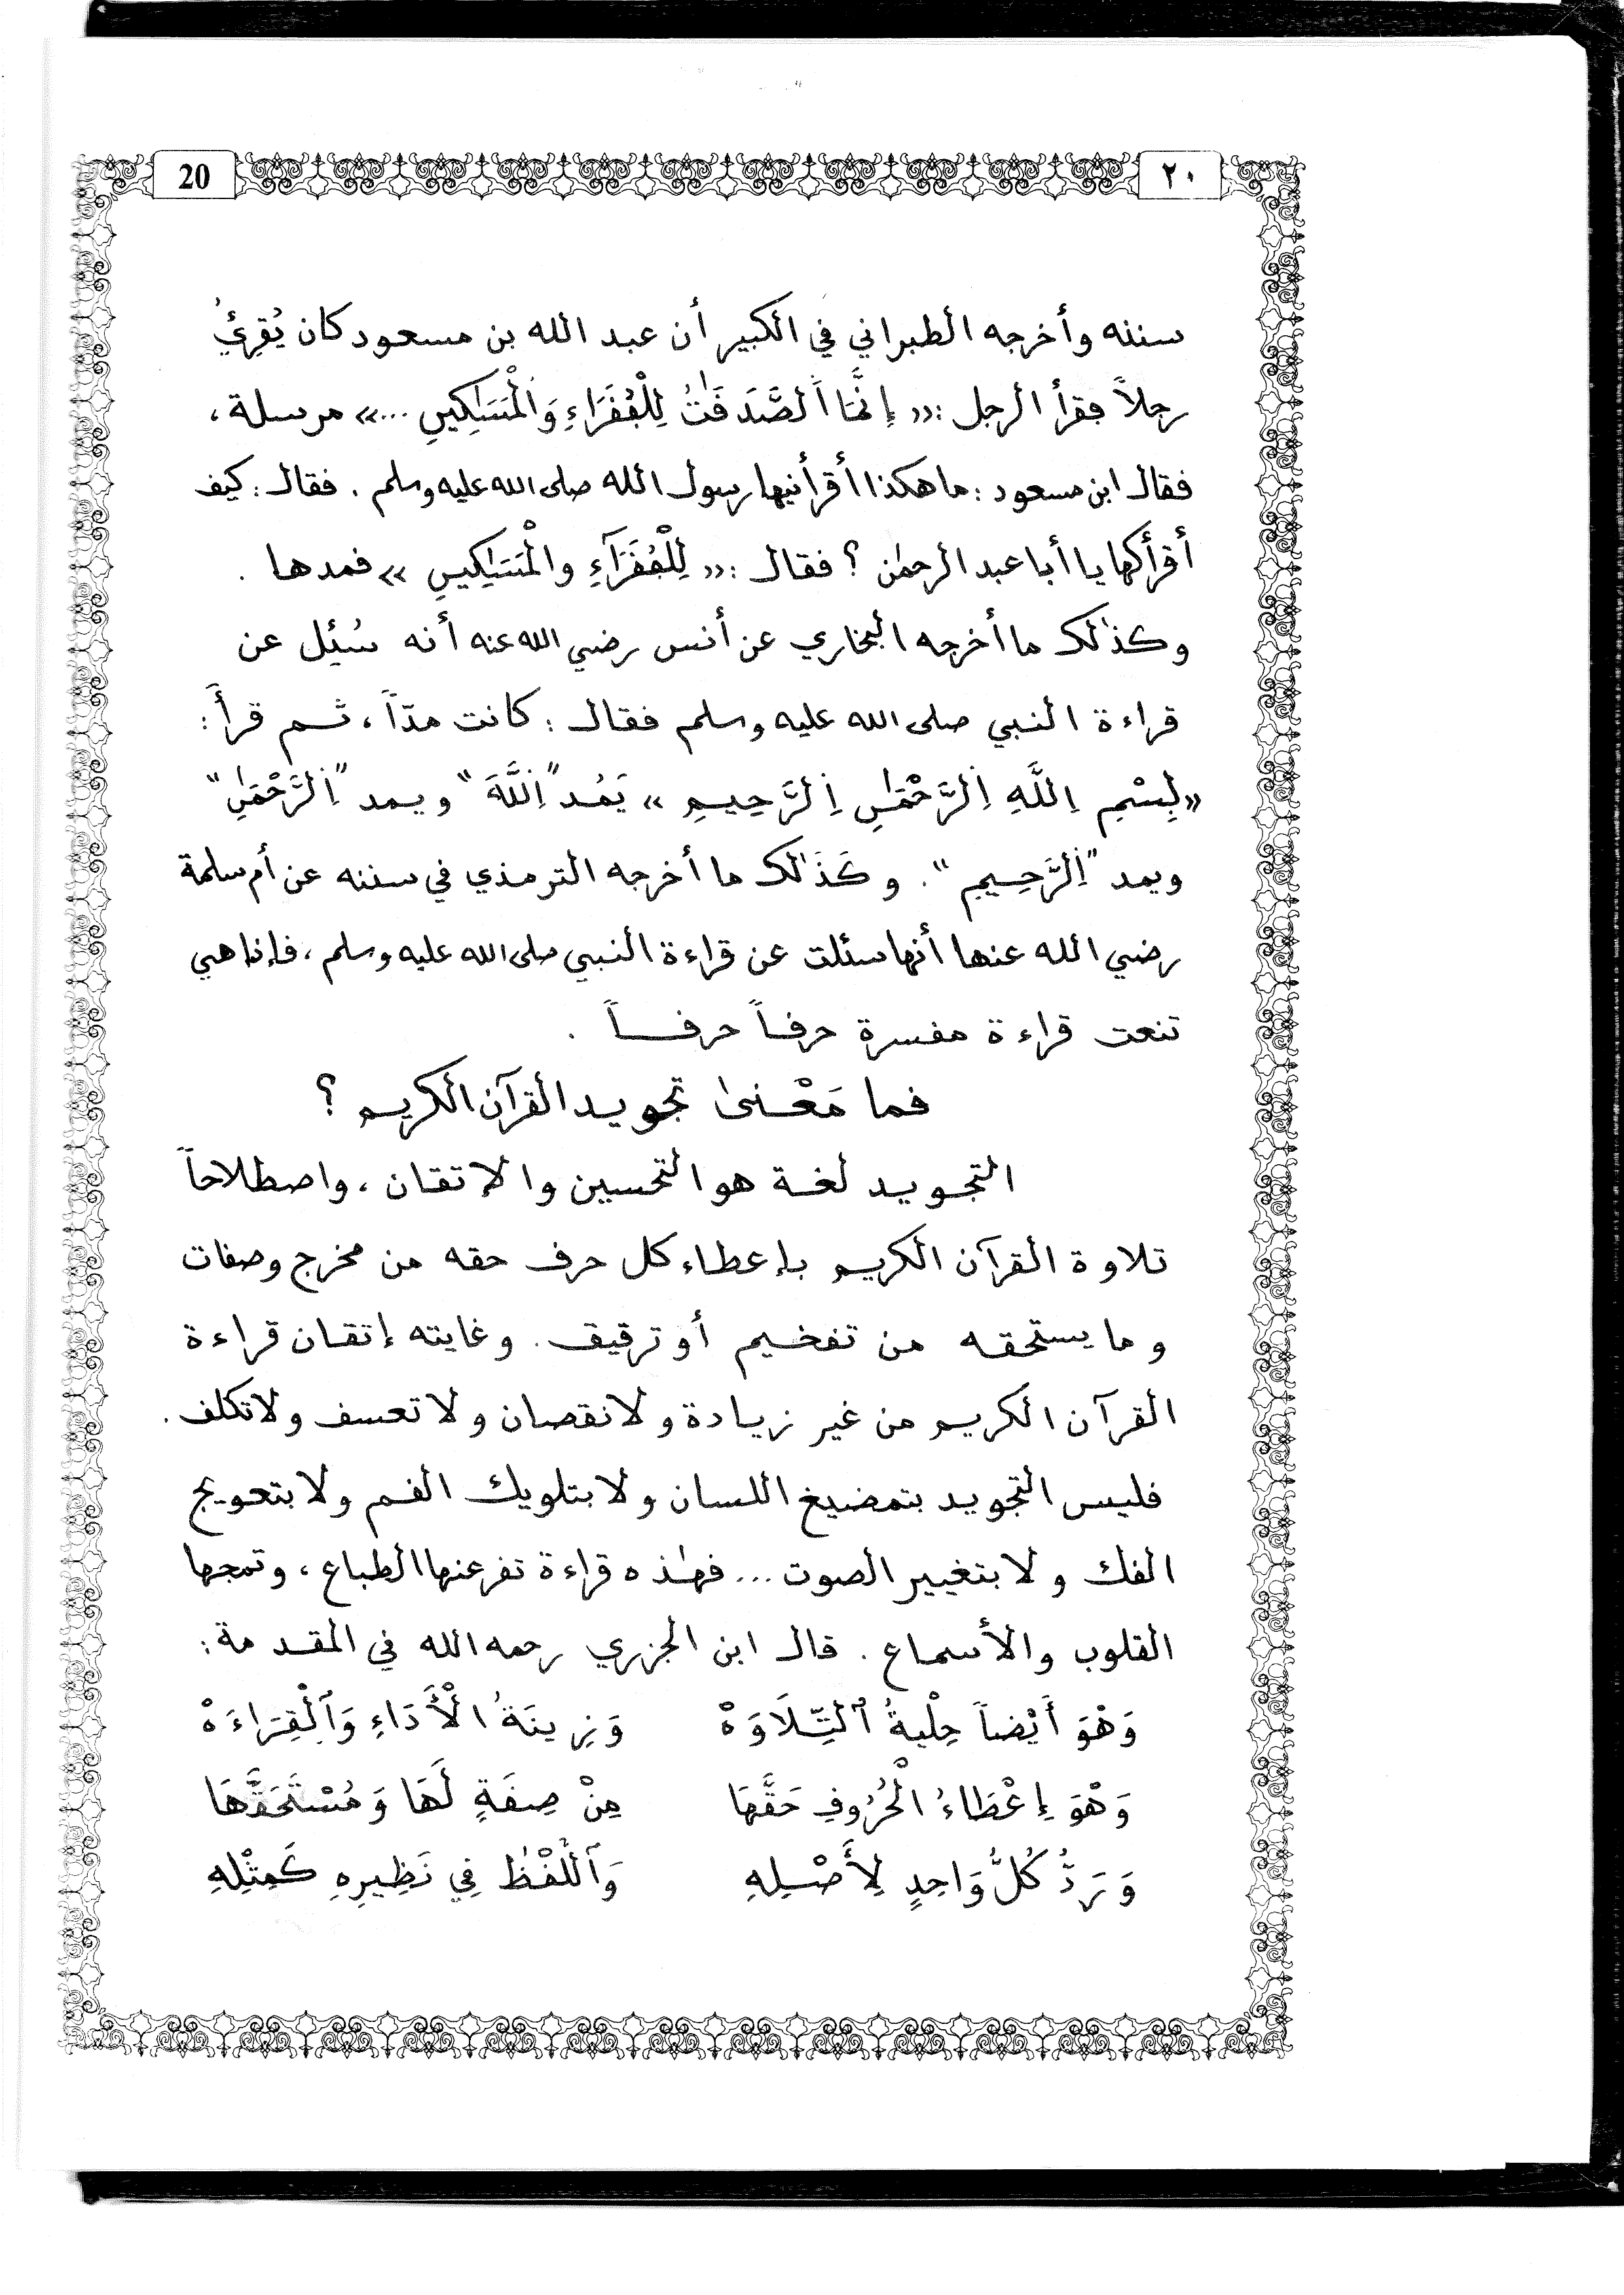 20 ٢٠
سننه وأخرجه الطبراني في الكبير أن عبد الله بن مسعود كان يُقرِئُ
رجلاً فقرأ الرجل : « إِنَّمَا اَلصَّدَقَٰتُ لِلْفُقَرَاءِ وَالْمَسَٰكِينِ ... » مرسلة ،
فقال ابن مسعود : ما هكذا أقرأنيها رسول الله صلى الله عليه وسلم . فقال : كيف
أقرأكها يا أبا عبد الرحمٰن ؟ فقال : « لِلْفُقَرَآءِ والْمَسَٰكِينِ » فمدها .
وكذٰلك ما أخرجه البخاري عن أنس رضي الله عنه أنه سُئِل عن
قراءة النبي صلى الله عليه وسلم فقال : كانت مدّاً ، ثم قرأَ :
« بِسْمِ اِللَّهِ اِلرَّحْمَٰنِ اِلرَّحِيمِ » يَمُد "اِللَّهَ" ويمد "اِلرَّحْمَٰنِ"
ويمد "اِلرَّحِيمِ" . وكَذَٰلك ما أخرجه الترمذي في سننه عن أم سلمة
رضي الله عنها أنها سئلت عن قراءة النبي صلى الله عليه وسلم ، فإذا هي
تنعت قراءة مفسرة حرفاً حرفاً .
فما مَعْنىٰ تجويد القرآن الكريم ؟
التجويد لغة هو التحسين والإتقان ، واصطلاحاً
تلاوة القرآن الكريم بإعطاء كل حرف حقه من مخرج وصفات
وما يستحقه من تفخيم أو ترقيق . وغايته إتقان قراءة
القرآن الكريم من غير زيادة ولا نقصان ولا تعسف ولا تكلف .
فليس التجويد بتمضيغ اللسان ولا بتلويك الفم ولا بتعويج
الفك ولا بتغيير الصوت ... فهٰذه قراءة تفر عنها الطباع ، وتمجها
القلوب والأسماع . قال ابن الجزري رحمه الله في المقدمة :
وَهْوَ أَيْضاً حِلْيةُ ٱلتِّلَاوَهْ وَزِينَةُ الْأَدَاءِ وَٱلْقِرَاءَهْ
وَهْوَ إِعْطَاءُ الْحُرُوفِ حَقَّهَا مِنْ صِفَةٍ لَهَا وَمُسْتَحَقَّهَا
وَرَدُّ كُلِّ وَاحِدٍ لِأَصْلِهِ وَٱللَّفْظُ فِي نَظِيرِهِ كَمِثْلِهِ